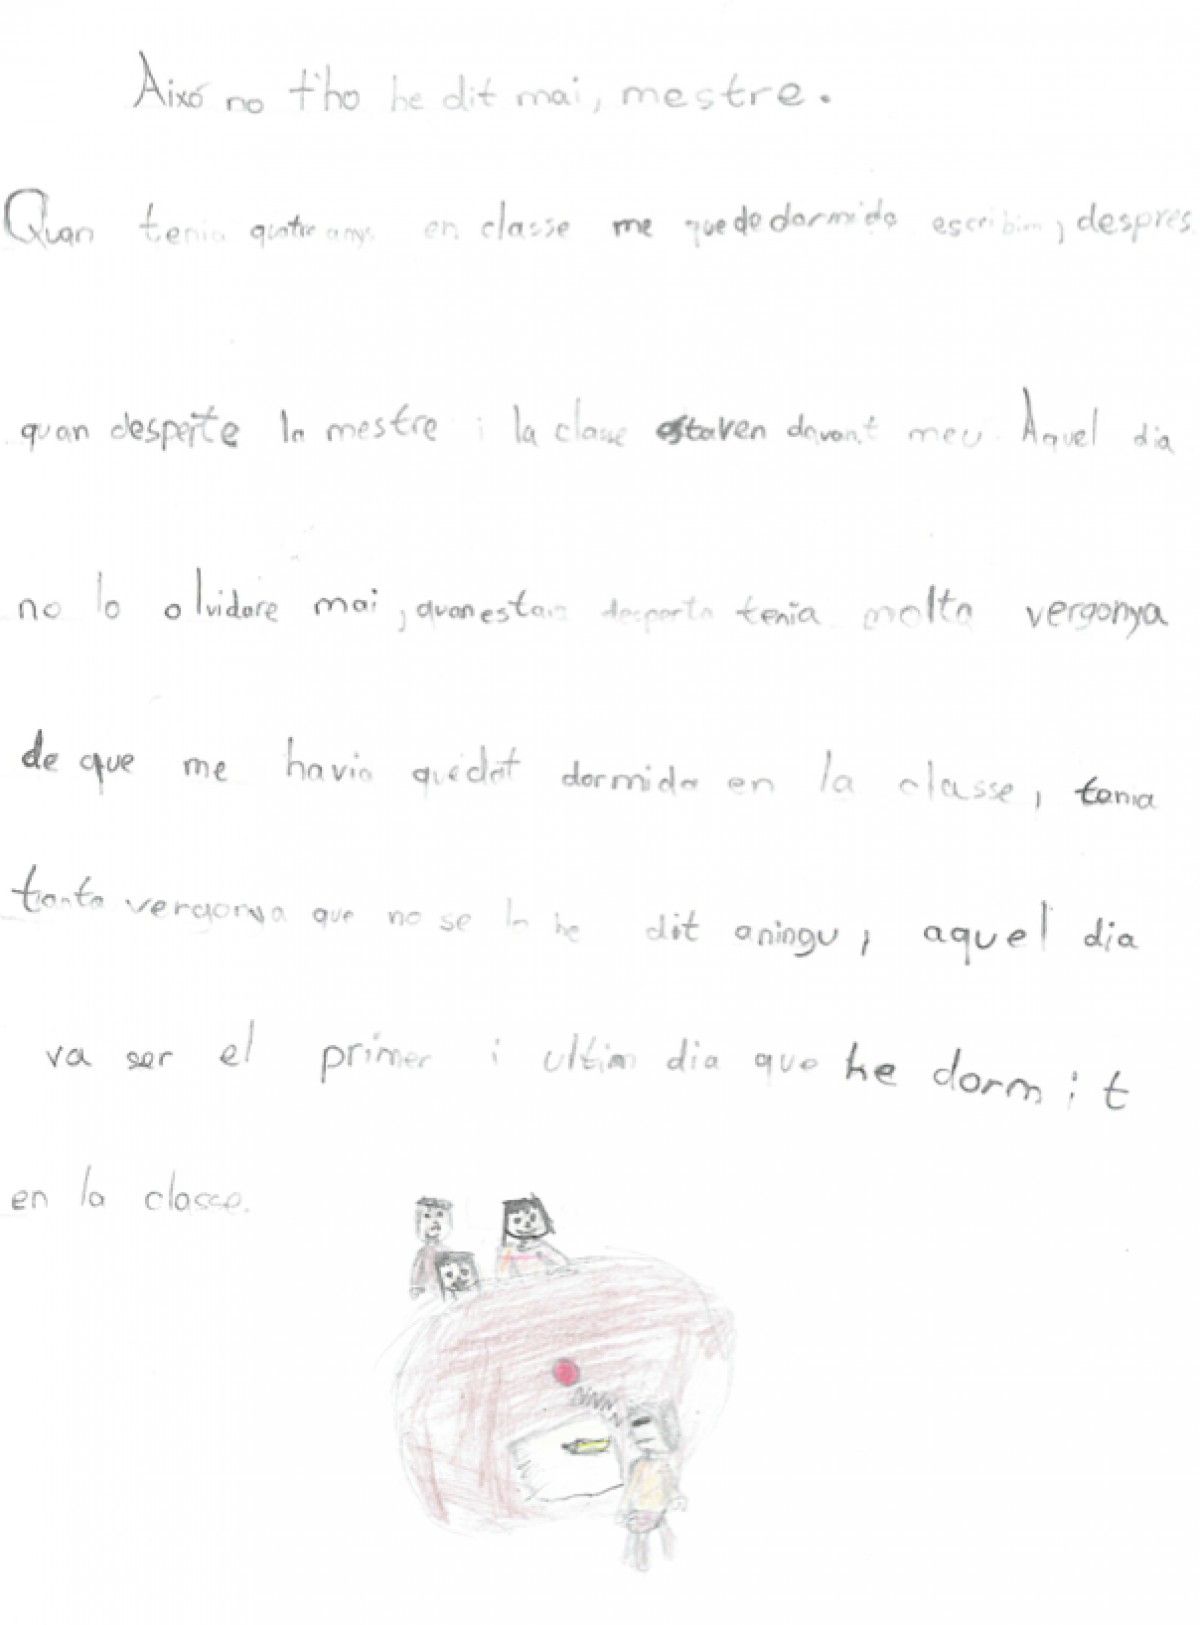 Aixó no t'ho he dit mai, mestre.
Quan tenia quatre anys en classe me quede dormida escribim, despres
quan desperte la mestre i la classe estaven davant meu. Aquel dia
no lo olvidare mai, quan estava desperta tenia molta vergonya
de que me havia quedat dormida en la classe, tenia
tanta vergonya que no se la he dit aningu, aquel dia
va ser el primer i ultim dia que he dormit
en la classe.